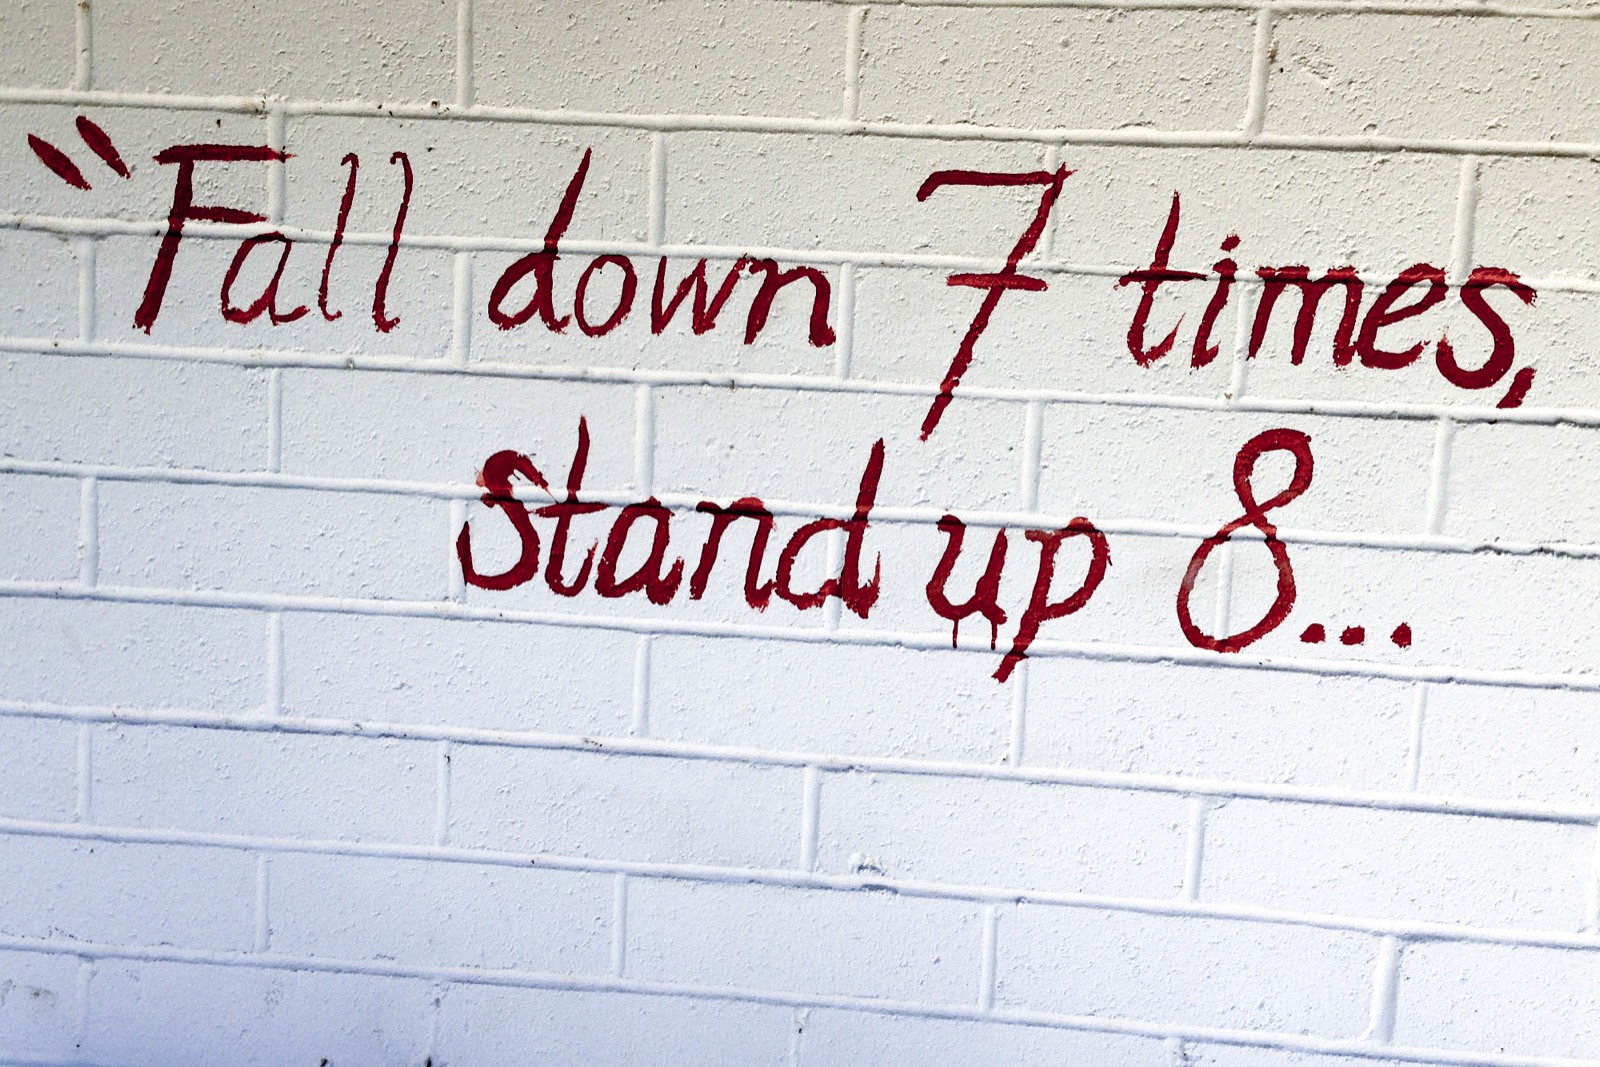 "Fall down 7 times,
stand up 8...